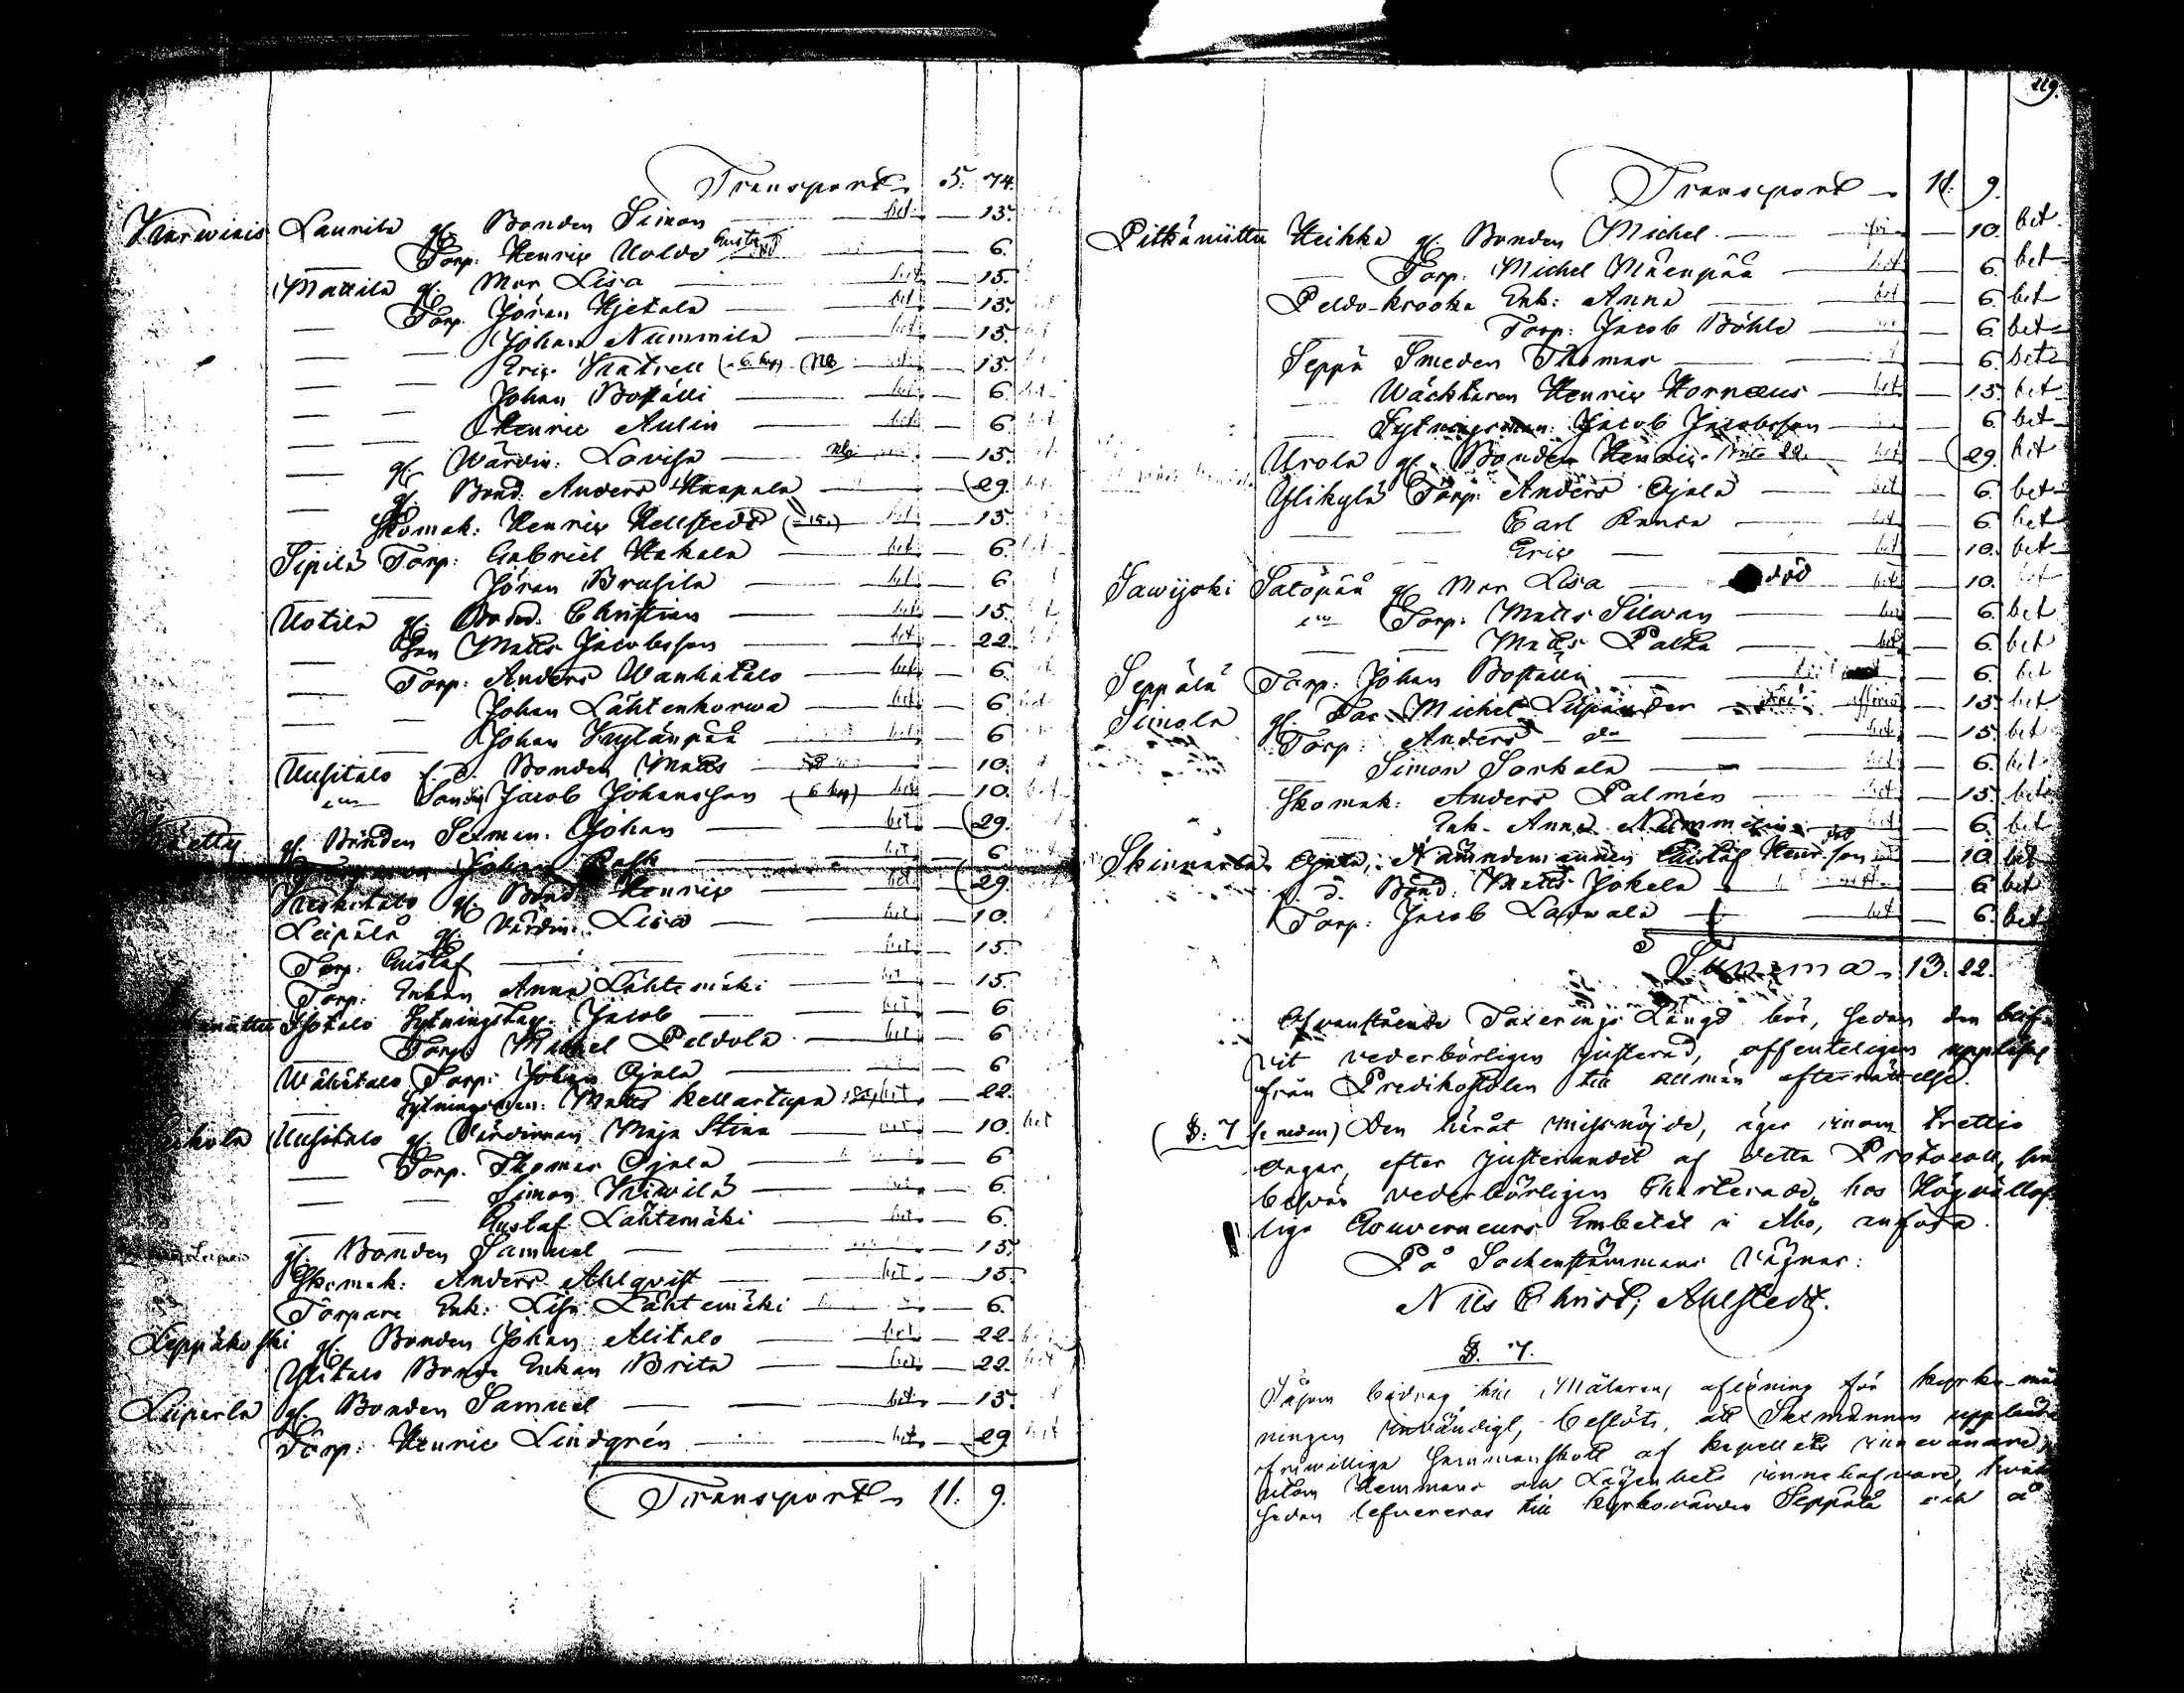 Transport 5. 74.
Karwiais Laurila gl. Bonden Simon bet 15.
Torp: Henric Uoldo Gustaf 6.
Mattila gl. Mor Lisa bet 15.
Torp. Jöran Hjetala bet 15.
Johan Nummila bet 15.
Eric (6 kop) NB 15.
Johan Boställi bet 6
Henric Aulin bet 6
gl. Värdin: Lovisa 15.
gl. Bond: Anders Haapala 29.
Skomak: Henric Hellstedt (15.) bet 15.
Sipilä Torp: Gabriel Hakala bet 6.
Jöran Brusila bet 6
Uotila gl. Bond: Christian bet 15.
Son Matts Jacobsson bet 22.
Torp: Anders Wanhatalo bet 6.
Johan Lähtenkorwa bet 6
Johan 6
Uusitalo f. d. Bonden Matts 10.
Jacob Johansson (6 kop) bet 10.
gl. Bonden Sexman: Johan bet 29.
Johan Rask bet 6
gl. Bond Henric bet 29
Leipälä gl. Värdin: Lisa bet 10.
Torp: Gustaf bet 15.
Torp: Enkan Anna Lähtemäki bet 15.
Isotalo Sytningstag. Jacob bet 6
Torp: Michel Peldola bet 6
Wähätalo Torp: Johan Ojala 6
Sytningsman: Matts Kellartupa bet 22.
Uusitalo gl. Värdinnan Maja Stina bet 10. bet
Torp. Thomas Ojala 6
Simon Kiwilä 6.
Gustaf Lähtemäki bet 6.
gl. Bonden Samuel 15.
Skomak: Anders Ahlqvist bet 15.
Torpare Enk: Lisa Lähtemäki 6.
Leppäkoski gl. Bonden Johan Alitalo bet 22.
Ylitalo Bonde Enkan Brita bet 22.
Liiperla gl. Bonden Samuel bet 15.
Torp: Henric Lindgrén bet 29
Transport 11. 9.
119.
Transport 11. 9.
Pitkäniittu Heikka gl. Bonden Michel 10. bet
Torp. Michel Mäenpää bet 6. bet
Peldo-krooka Enk: Anna bet 6. bet
Torp: Jacob Böhle 6. bet
Seppä Smeden Thomas 6. bet
Wäcktaren Henric Hornæus bet 15. bet
Sytningsman: Jacob Jacobsson 6. bet
Urola gl. Bonden Henric 22. bet 29. bet
Ylikylä Torp: Anders Ojala bet 6. bet
Carl bet 6. bet
Eric bet 10. bet
Sawijoki Satopää gl. Mor Lisa död bet 10. bet
Torp: Matts Silwan bet 6. bet
Matts Palka bet 6. bet
Seppälä Torp: Johan Boställi 6. bet
Simola gl. Michel 15. bet
Torp: Anders bet 15. bet
Simon Sorkala bet 6. bet
Skomak: Anders Palmén bet 15. bet
Enk. Anna bet 6. bet
Skinnarla Ojala, Nämndemannen Gustaf Henr:son 10. bet
f. d. Bond. Matts Jokela 6 bet
Torp: Jacob bet 6. bet
Summa 13. 22.
Ofvanstående Taxerings Längd bör, sedan den blif-
vit vederbörligen justerad, offenteligen uppläsas
från Predikstolen till allmän efterrättelse.
(§. 7 se nedan) Den häråt missnöjde, äger inom trettio
dagar, efter justerandet af detta Protocoll, sina
besvär vederbörligen Charterade, hos Högvällof-
liga Gouverneurs Embetet i Åbo, anföra.
På Sockenstämmans vägnar:
Nils Christ; Ahlstedt.
§. 7.
Såsom bidrag till Målarens aflöning för kyrko-mål-
ningen invändigt, beslöts, att Sexmännen
frivilliga sammanskott af kapellets innevånare,
utom Hemmans och Lägenhets innehafvare,
sedan lefvereras till Kyrkovärden Seppälä och å